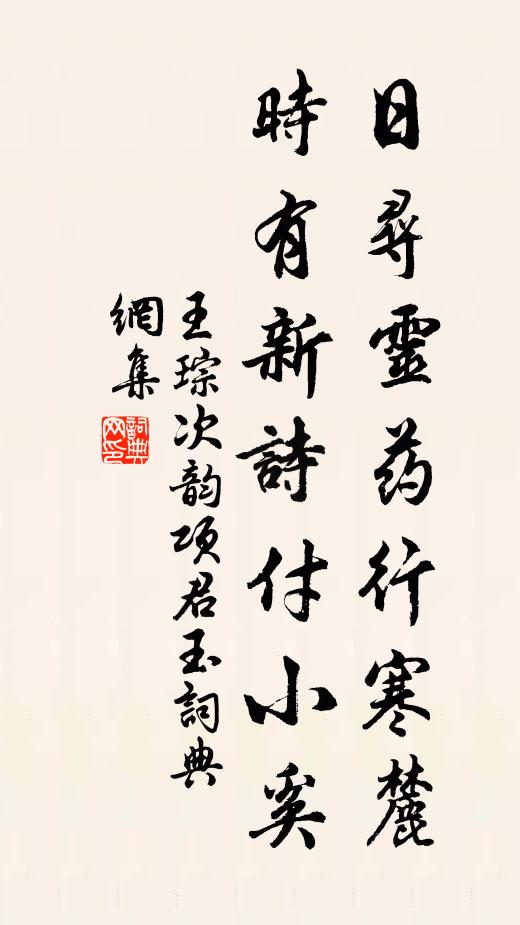 日尋靈药行寒麓
時有新詩付小奚
王琮次韵項君玉詞典
網集
詞典网印